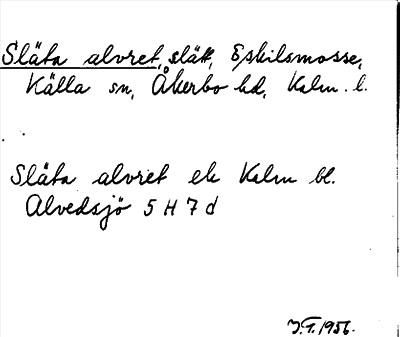 Släta alvret, slätt, Eskilsmosse,
Källa sn, Åkerbo hd, Kalm. l.
Släta alvret ek Kalm bl.
Alvedsjö 5 H 7 d
J.T. 1956.